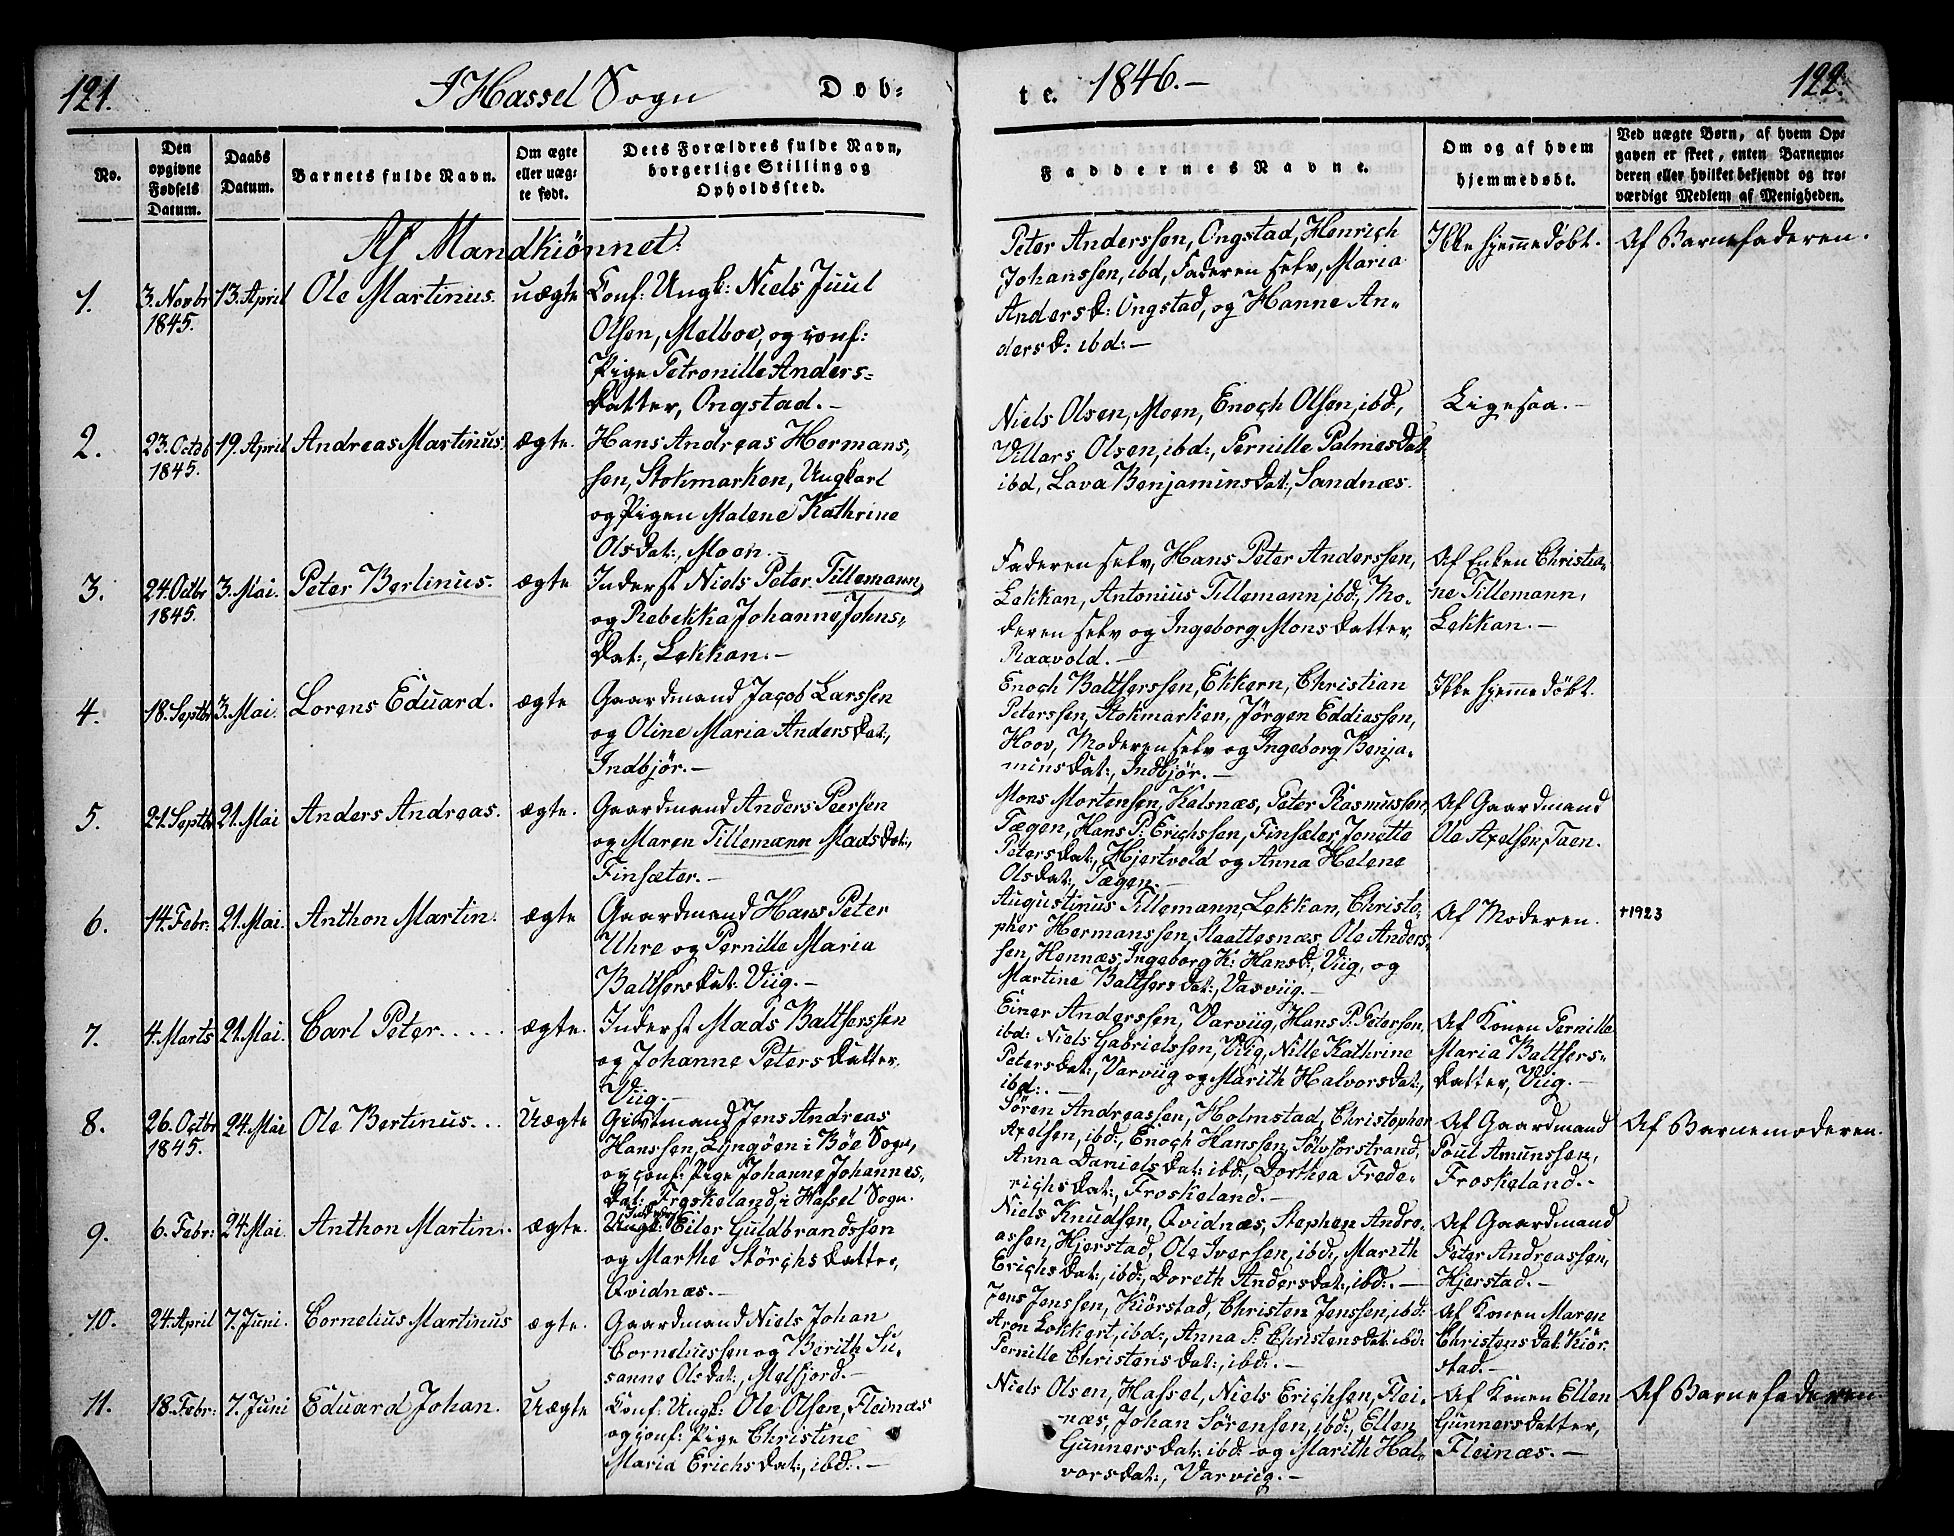 121.
I Hassel Sogn
Døb-
te.
1846.-
122.
No.
Den opgivne Fødsels Datum.
Daabs Datum.
Barnets fulde Navn.
Om ægte eller uægte født.
Dets Forældres fulde Navn, borgerlige Stilling og Opholdssted.
Faddernes Navne.
Om og af hvem hjemmedøbt.
Ved uægte Børn, af hvem Opgaven er skeet, enten Barnemoderen eller hvilket bekjendt og troværdigt Medlem af Menigheden.
Af Mandkiønnet:
1.
3. Novbr 1845.
13. April
Ole Martinus.
uægte
Conf: Ungk: Niels Juul
Olsen, Melboe, og conf:
Pige Petronille Anders-
Datter, Ongstad.-
Peter Anderssen, Ongstad, Henrich
Johanssen, ibd, Faderen selv, Maria
AndersD: Ongstad, og Hanne An-
dersD: ibd:-
Ikke hjemmedøbt.
Af Barnefaderen.
2.
23. Octb 1845.
19. April
Andreas Martinus.
ægte.
Hans Andreas Hermans-
sen, Stokmarken, Ungkarl
og Pigen Malene Kathrine
OlsDat:, Moen.-
Niels Olsen, Moen, Enoch Olsen, ibd,
Villars Olsen, ibd:, Pernille PalmesDat:
ibd, Lava BenjaminsDat:, Sandnæs.
Ligesaa.-
3.
24. Octbr 1845.
3. Mai.
Peter Berlinus.
ægte
Inderst Niels Peter Tillemann,
og Rebekka Johanne Johns-
Dat:, Lekkan.-
Faderen selv, Hans Peter Anderssen,
Lekkan, Antonius Tillemann, ibd:, Mo-
deren selv og Ingeborg MonsDatter,
Raavold.-
Af Enken Christia-
ne Tillemann,
Lekkan.-
4.
18. Septbr
3. Mai.
Lorens Eduard.
ægte
Gaardmand Jacob Larssen
og Oline Maria AndersDat:,
Indbjör.-
Enoch Baltserssen, Ekkern, Christian
Peterssen, Stokmarken, Jørgen Eddiassen,
Hoov, Moderen selv og Ingeborg Benja-
minsDat:, Indbjör.-
Ikke hjemmedøbt.
5.
21. Septbr
21. Mai
Anders Andreas.
ægte.
Gaardmand Anders Peersen
og Maren Tillemann MadsDat:,
Finsæter.-
Mons Mortensen, Kalsnæs, Peter Rasmussen,
Tægen, Hans P: Erichssen, Finsæter, Jonette
PetersDat:, Hjertvold og Anna Helene
OlsDat:, Tægen.-
Af Gaardmand
Ole Axelsen, Taen.
6.
14. Febr:
21. Mai.
Anthon Martin.
ægte
Gaardmand Hans Peter
Uhre og Pernille Maria
BaltsersDat: Viig.-
Augustinus Tillemann, Lekkan, Christo-
pher Hermanssen, Slaattesnæs, Ole Anders-
sen, Hennæs, Ingeborg K: HansD:, Viig, og
Martine BaltsersDat:, Varviig.-
Af Moderen.
+1923
7.
4. Marts
21. Mai.
Carl Peter.....
ægte.
Inderst Mads Baltserssen
og Johanne PetersDatter,
Viig.-
Einer Anderssen, Varviig, Hans P. Petersen,
ibd: Niels Gabrielssen, Viig, Nille Kathrine
PetersDat:, Varviig og Marith HalvorsDat:,
ibd:.-
Af Konen Pernille
Maria Baltsers-
Datter, Viig.-
8.
26. Octbr 1845.
24. Mai
Ole Bertinus...
Uægte
Giftmand Jens Andreas
Hanssen, Lyngøen i Bøe Sogn,
og conf: Pige Johanne Johannes-
Dat: Froskeland, i Hassel Sogn.
Søren Andreassen, Holmstad, Christopher
Axelsen, ibd:, Enoch Hanssen, Sølvforstrand,
Anna DanielsDat: ibd:, Dorthea Frede-
richsDat:, Froskeland.-
Af Gaardmand
Poul Amunssen,
Froskeland.-
Af Barnemoderen.
9.
6. Febr:
24. Mai.
Anthon Martin..
ægte.
Ungk: Eiler Guldbrandssen
og Marthe StörchsDatter,
Qvidnæs.-
Niels Knudsen, Qvidnæs, Stephen Andre-
assen, Hjerstad, Ole Iversen, ibd:, Marith
ErichsDat:, ibd:, Doreth AndersDat:, ibd:.-
Af Gaardmand
Peter Andreassen,
Hjerstad.-
10.
24. April
7. Juni.
Cornelius Martinus
ægte.
Gaardmand Niels Johan
Corneliussen og Berith Su-
sanne OlsDat:, Melfjord.-
Jens Jenssen, Kiörstad, Christen Jenssen, ibd:
Aron Lokkert, ibd:, Anna P: ChristensDat: ibd:
Pernille ChristensDat:, ibd:.-
Af Konen Maren
ChristensDat: Kiör-
stad.-
11.
18. Febr:
7. Juni
Eduard Johan.
Uægte
Conf: Ungk: Ole Olsen, Fleinæs
og conf: Pige Christine
Maria ErichsDat:, ibd:.-
Niels Olsen, Hassel, Niels Erichsen, Flei-
næs, Johan Sörensen, ibd:, Ellen
GunnersDat: ibd: og Marith Hal-
vorsDat:, Varviig.-
Af Konen Ellen
GunnersDatter,
Fleinæs.-
Af Barnefaderen